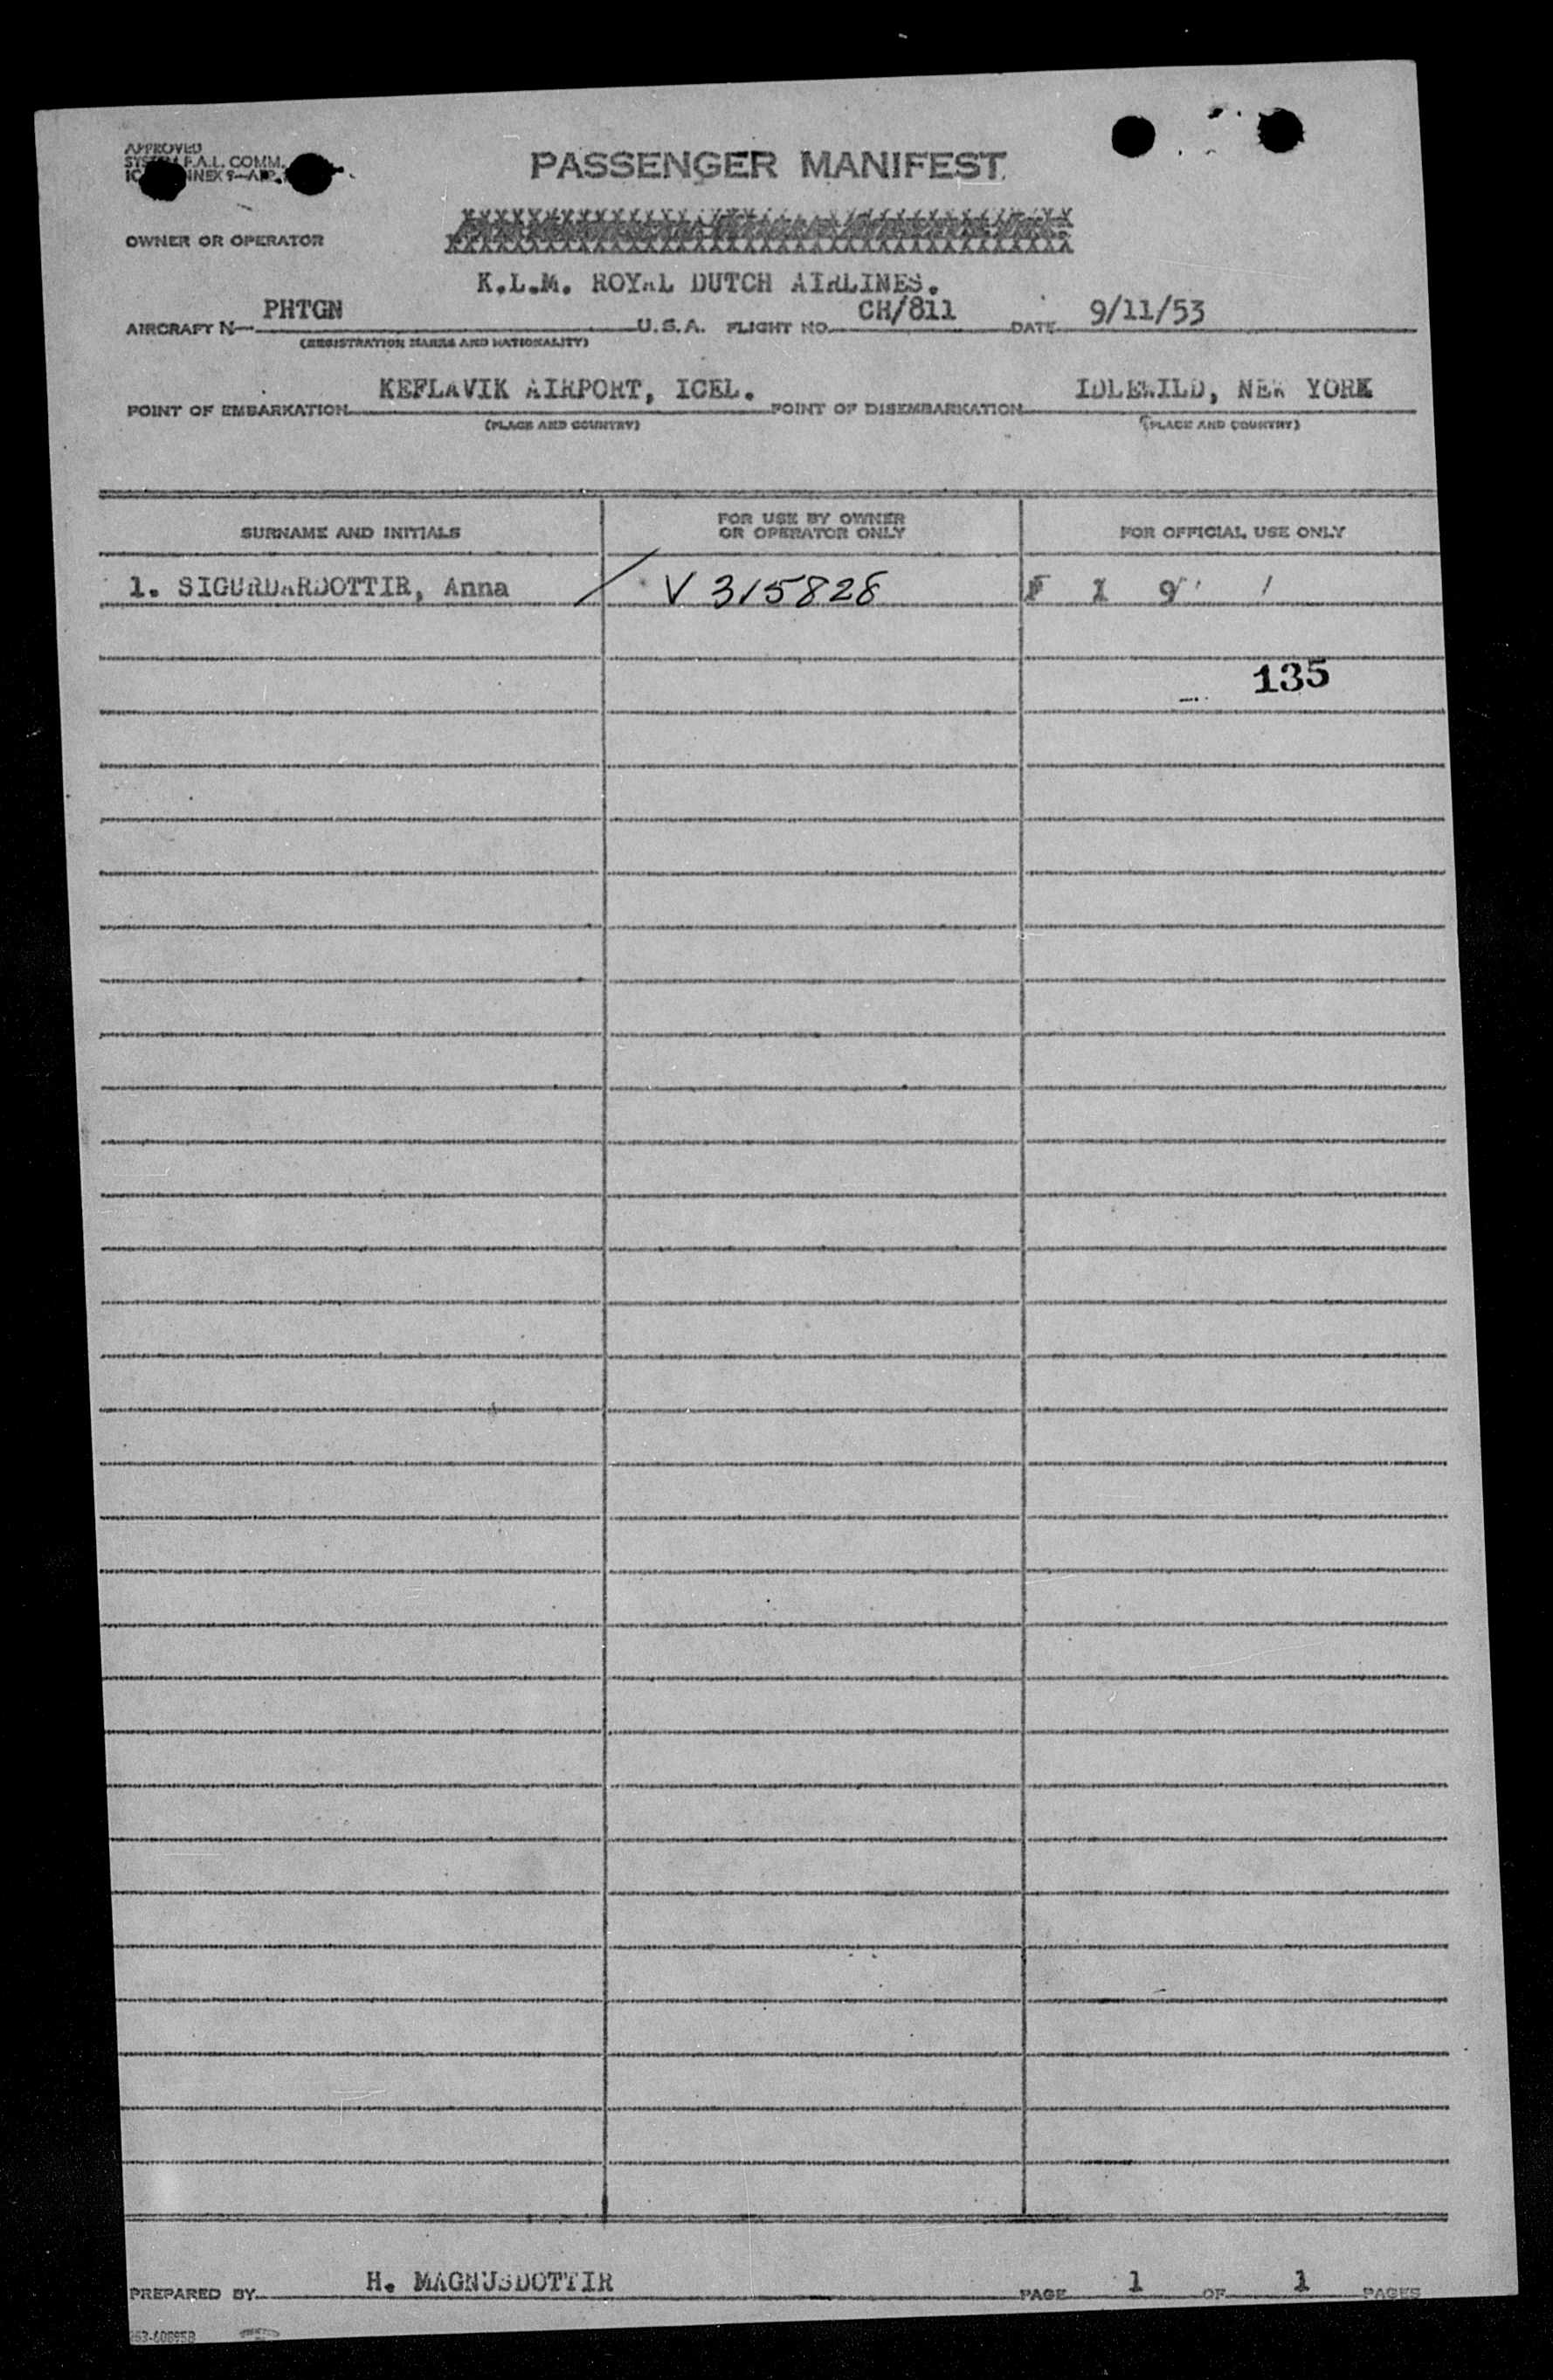 APPROVED
F.A.L. COMM.
PASSENGER MANIFEST
OWNER OR OPERATOR
K.L.M. ROYAL DUTCH AIRLINES.
AIRCRAFT N PHTGN U.S.A. FLIGHT NO. CH/811 DATE 9/11/53
(REGISTRATION MARKS AND NATIONALITY)
POINT OF EMBARKATION KEFLAVIK AIRPORT, ICEL. POINT OF DISEMBARKATION IDLEWILD, NEW YORK
(PLACE AND COUNTRY) (PLACE AND COUNTRY)
SURNAME AND INITIALS FOR USE BY OWNER OR OPERATOR ONLY FOR OFFICIAL USE ONLY
1. SIGURDARDOTTIR, Anna / V 315828 F 1 9
135
PREPARED BY H. MAGNUSDOTTIR PAGE 1 OF 1 PAGES